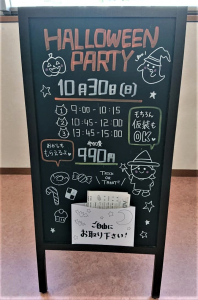 HALLOWEEN
PARTY
10月30日(日)
1 9:00-10:15
2 10:45-12:00
3 13:45-15:00
もちろん
仮装も
OK
おかしも
もらえるよ
参加費
990円
TRICK
OR
TREAT
ご自由に
お取り下さい!